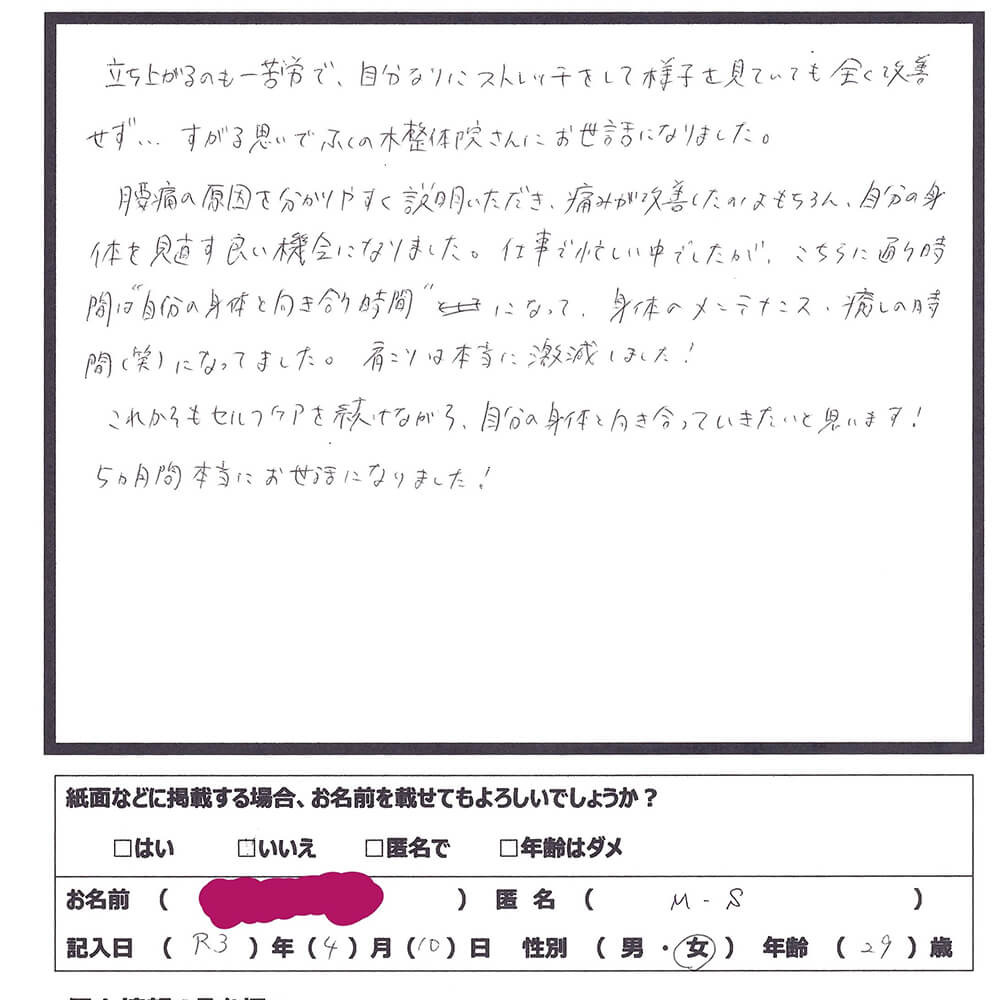 立ち上がるのも一苦労で、自分なりにストレッチをして様子を見ていても全く改善
せず… すがる思いでふくの木整体院さんにお世話になりました。
腰痛の原因を分かりやすく説明いただき、痛みが改善したのはもちろん、自分の身
体を見直す良い機会になりました。仕事で忙しい中でしたが、こちらに通う時
間は"自分の身体と向き合う時間"になって、身体のメンテナンス・癒しの時
間(笑)になってました。肩こりは本当に激減しました!
これからもセルフケアを続けながら、自分の身体と向き合っていきたいと思います!
5ヵ月間本当にお世話になりました!
紙面などに掲載する場合、お名前を載せてもよろしいでしょうか?
□はい □いいえ □匿名で □年齢はダメ
お名前 ( ) 匿名 ( M-S )
記入日 ( R3 ) 年 ( 4 ) 月 ( 10 ) 日 性別 ( 男 ・ 女 ) 年齢 ( 29 ) 歳